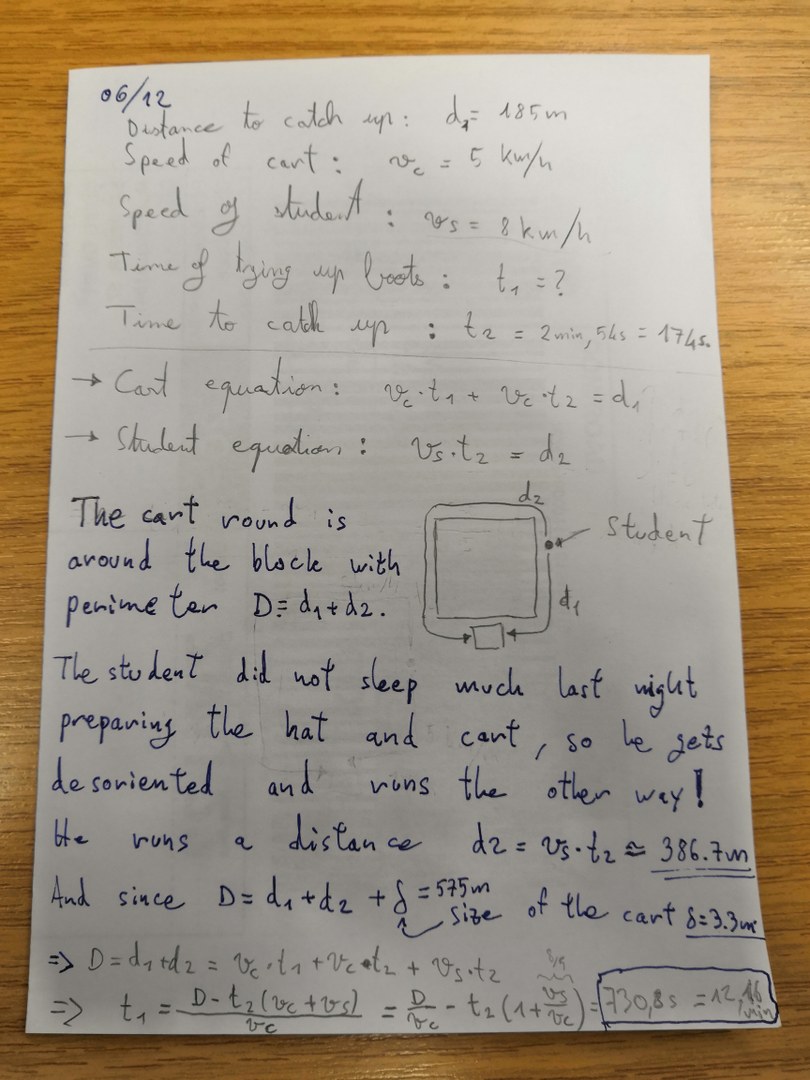 06/12
Distance to catch up: d₁= 185m
Speed of cart: v_c = 5 km/h
Speed of student: v_s = 8 km/h
Time of tying up boots: t₁ = ?
Time to catch up : t₂ = 2min, 54s = 174s.
→ Cart equation: v_c·t₁ + v_c·t₂ = d₁
→ Student equation: v_s·t₂ = d₂
The cart round is
around the block with
perimeter D = d₁+d₂.
d₂
Student
d₁
The student did not sleep much last night
preparing the hat and cart, so he gets
desoriented and runs the other way!
He runs a distance d₂ = v_s·t₂ ≈ 386.7m
And since D = d₁+d₂ + δ = 575m
size of the cart δ=3.3m
=> D = d₁+d₂ = v_c·t₁ + v_c·t₂ + v_s·t₂
=> t₁ = (D - t₂(v_c+v_s))/v_c = D/v_c - t₂(1+v_s/v_c) = 730,8s = 12,16 min
8/5